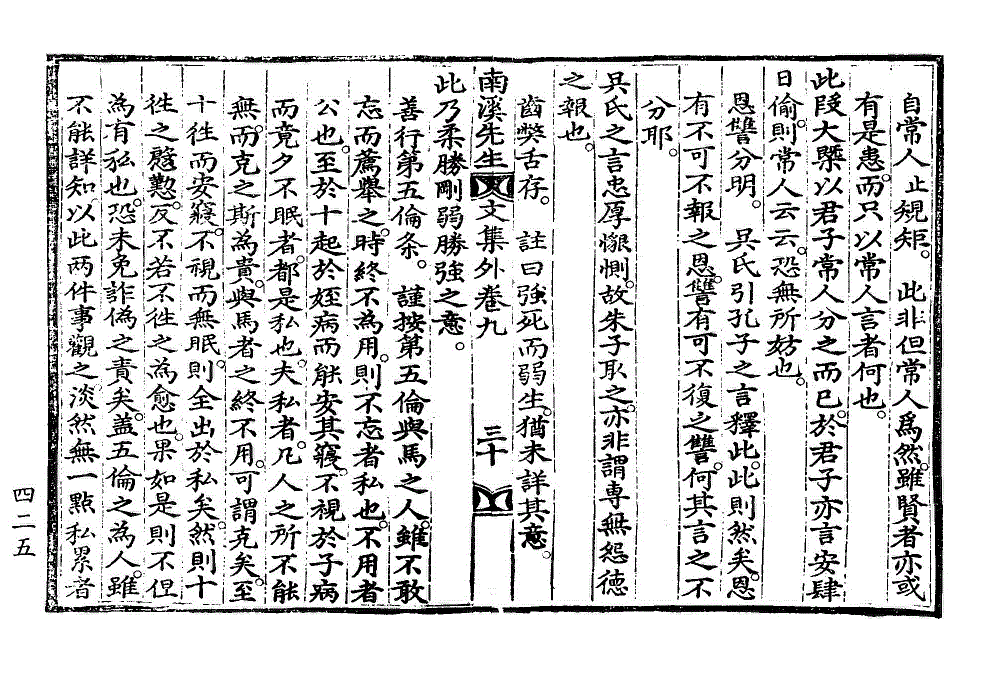 自常人止規矩。　此非但常人爲然。雖賢者亦或
有是患。而只以常人言者何也。
此段大槩以君子常人分之而已。於君子亦言安肆
日偷。則常人云云。恐無所妨也。
恩讐分明。　吳氏引孔子之言釋此。此則然矣。恩
有不可不報之恩。讐有可不復之讐。何其言之不
分耶。
吳氏之言忠厚惻。故朱子取之。亦非謂專無怨德
之報也。
齒弊舌存。　註曰強死而弱生。猶未詳其意。
南溪先生文集外卷九　三十
此乃柔勝剛弱勝強之意。
善行第五倫条。　謹按第五倫與馬之人。雖不敢
忘而薦舉之。時終不為用。則不忘者私也。不用者
公也。至於十起於姪病而能安其寢。不視於子病
而竟夕不眠者。都是私也。夫私者。凡人之所不能
無。而克之斯為貴。與馬者之終不用。可謂克矣。至
十徃而安寢。不視而無眠。則全出於私矣。然則十
徃之慇懃。反不若不徃之為愈也。果如是則不但
為有私也。恐未免詐偽之責矣。盖五倫之為人。雖
不能詳知。以此两件事觀之。淡然無一點私累者
四二五